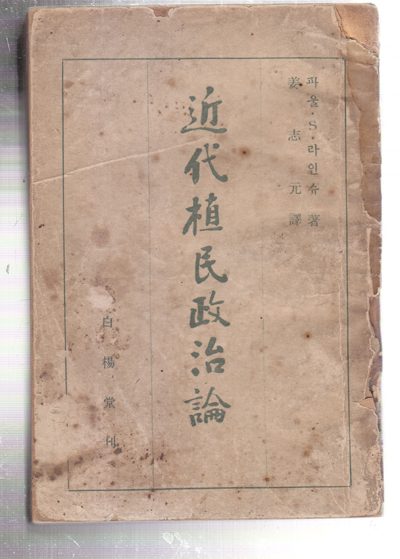 파울·S·라인슈 著
姜志元 譯
近代植民政治論
白楊堂刊